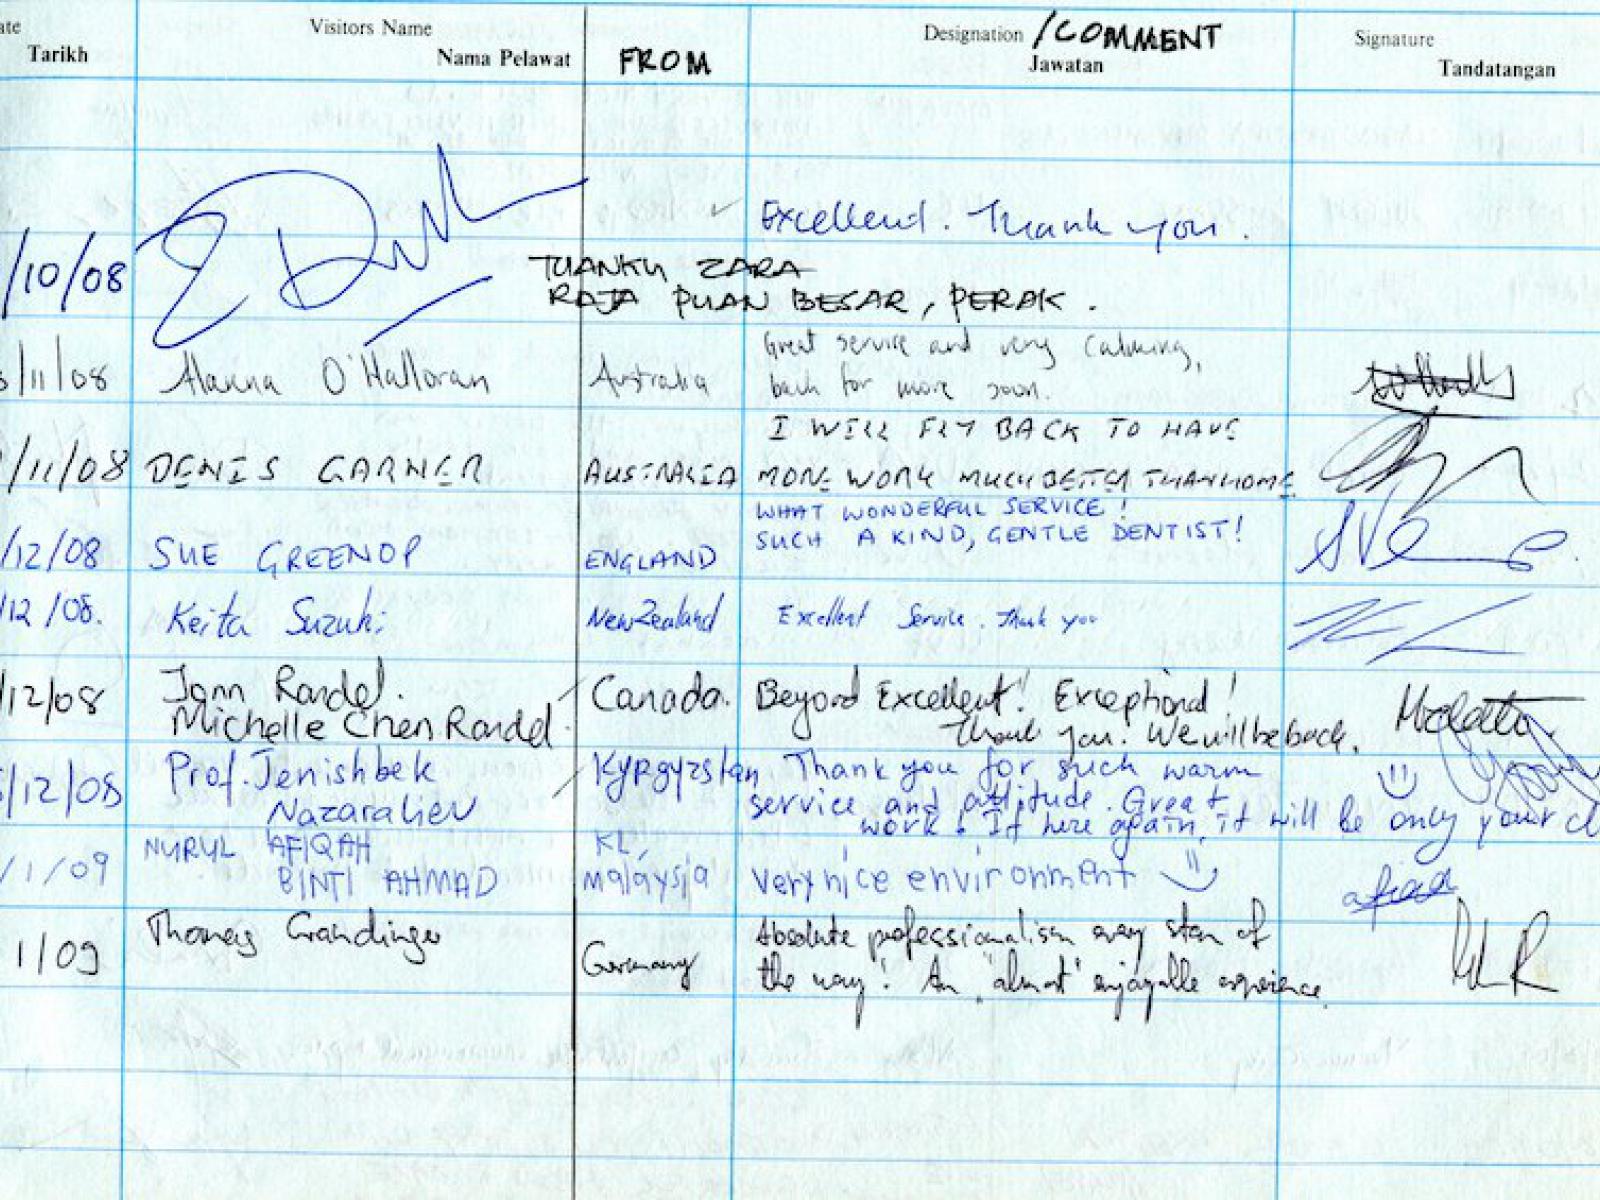 ate Visitors Name Designation /COMMENT Signature
Tarikh Nama Pelawat FROM Jawatan Tandatangan
Excellend. Thank you.
/10/08 TUANKU ZARA
RAJA PUAN BESAR, PERAK.
Great service and very calming,
/11/08 Alanna O'Halloran Australia back for more soon.
I WILL FLY BACK TO HAVE
/11/08 DENIS GARNER AUSTRALIA MORE WORK MUCH BETTER THAN HOME
WHAT WONDERFUL SERVICE!
/12/08 SUE GREENOP ENGLAND SUCH A KIND, GENTLE DENTIST!
/12/08. Keita Suzuki New Zealand Excellent Service. Thank you
/12/08 Jonn Randel. Canada. Beyond Excellent! Exceptional!
Michelle Chen Randel. Thank you. We will be back.
Prof. Jenishbek Kyrgyzstan Thank you for such warm
/12/08 Nazaraliev service and attitude. Great
work! If here again, it will be only your cl
NURUL AFIQAH KL,
/1/09 BINTI AHMAD Malaysia very nice environment
Thomas Grandinger Absolute professionalism every step of
1/09 Germany the way! An "almost" enjoyable experience.